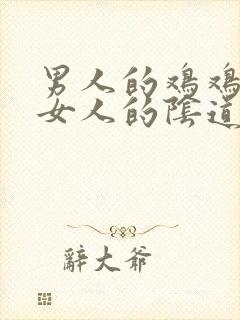 男人的鸡鸡
女人的陰道
辭大爷